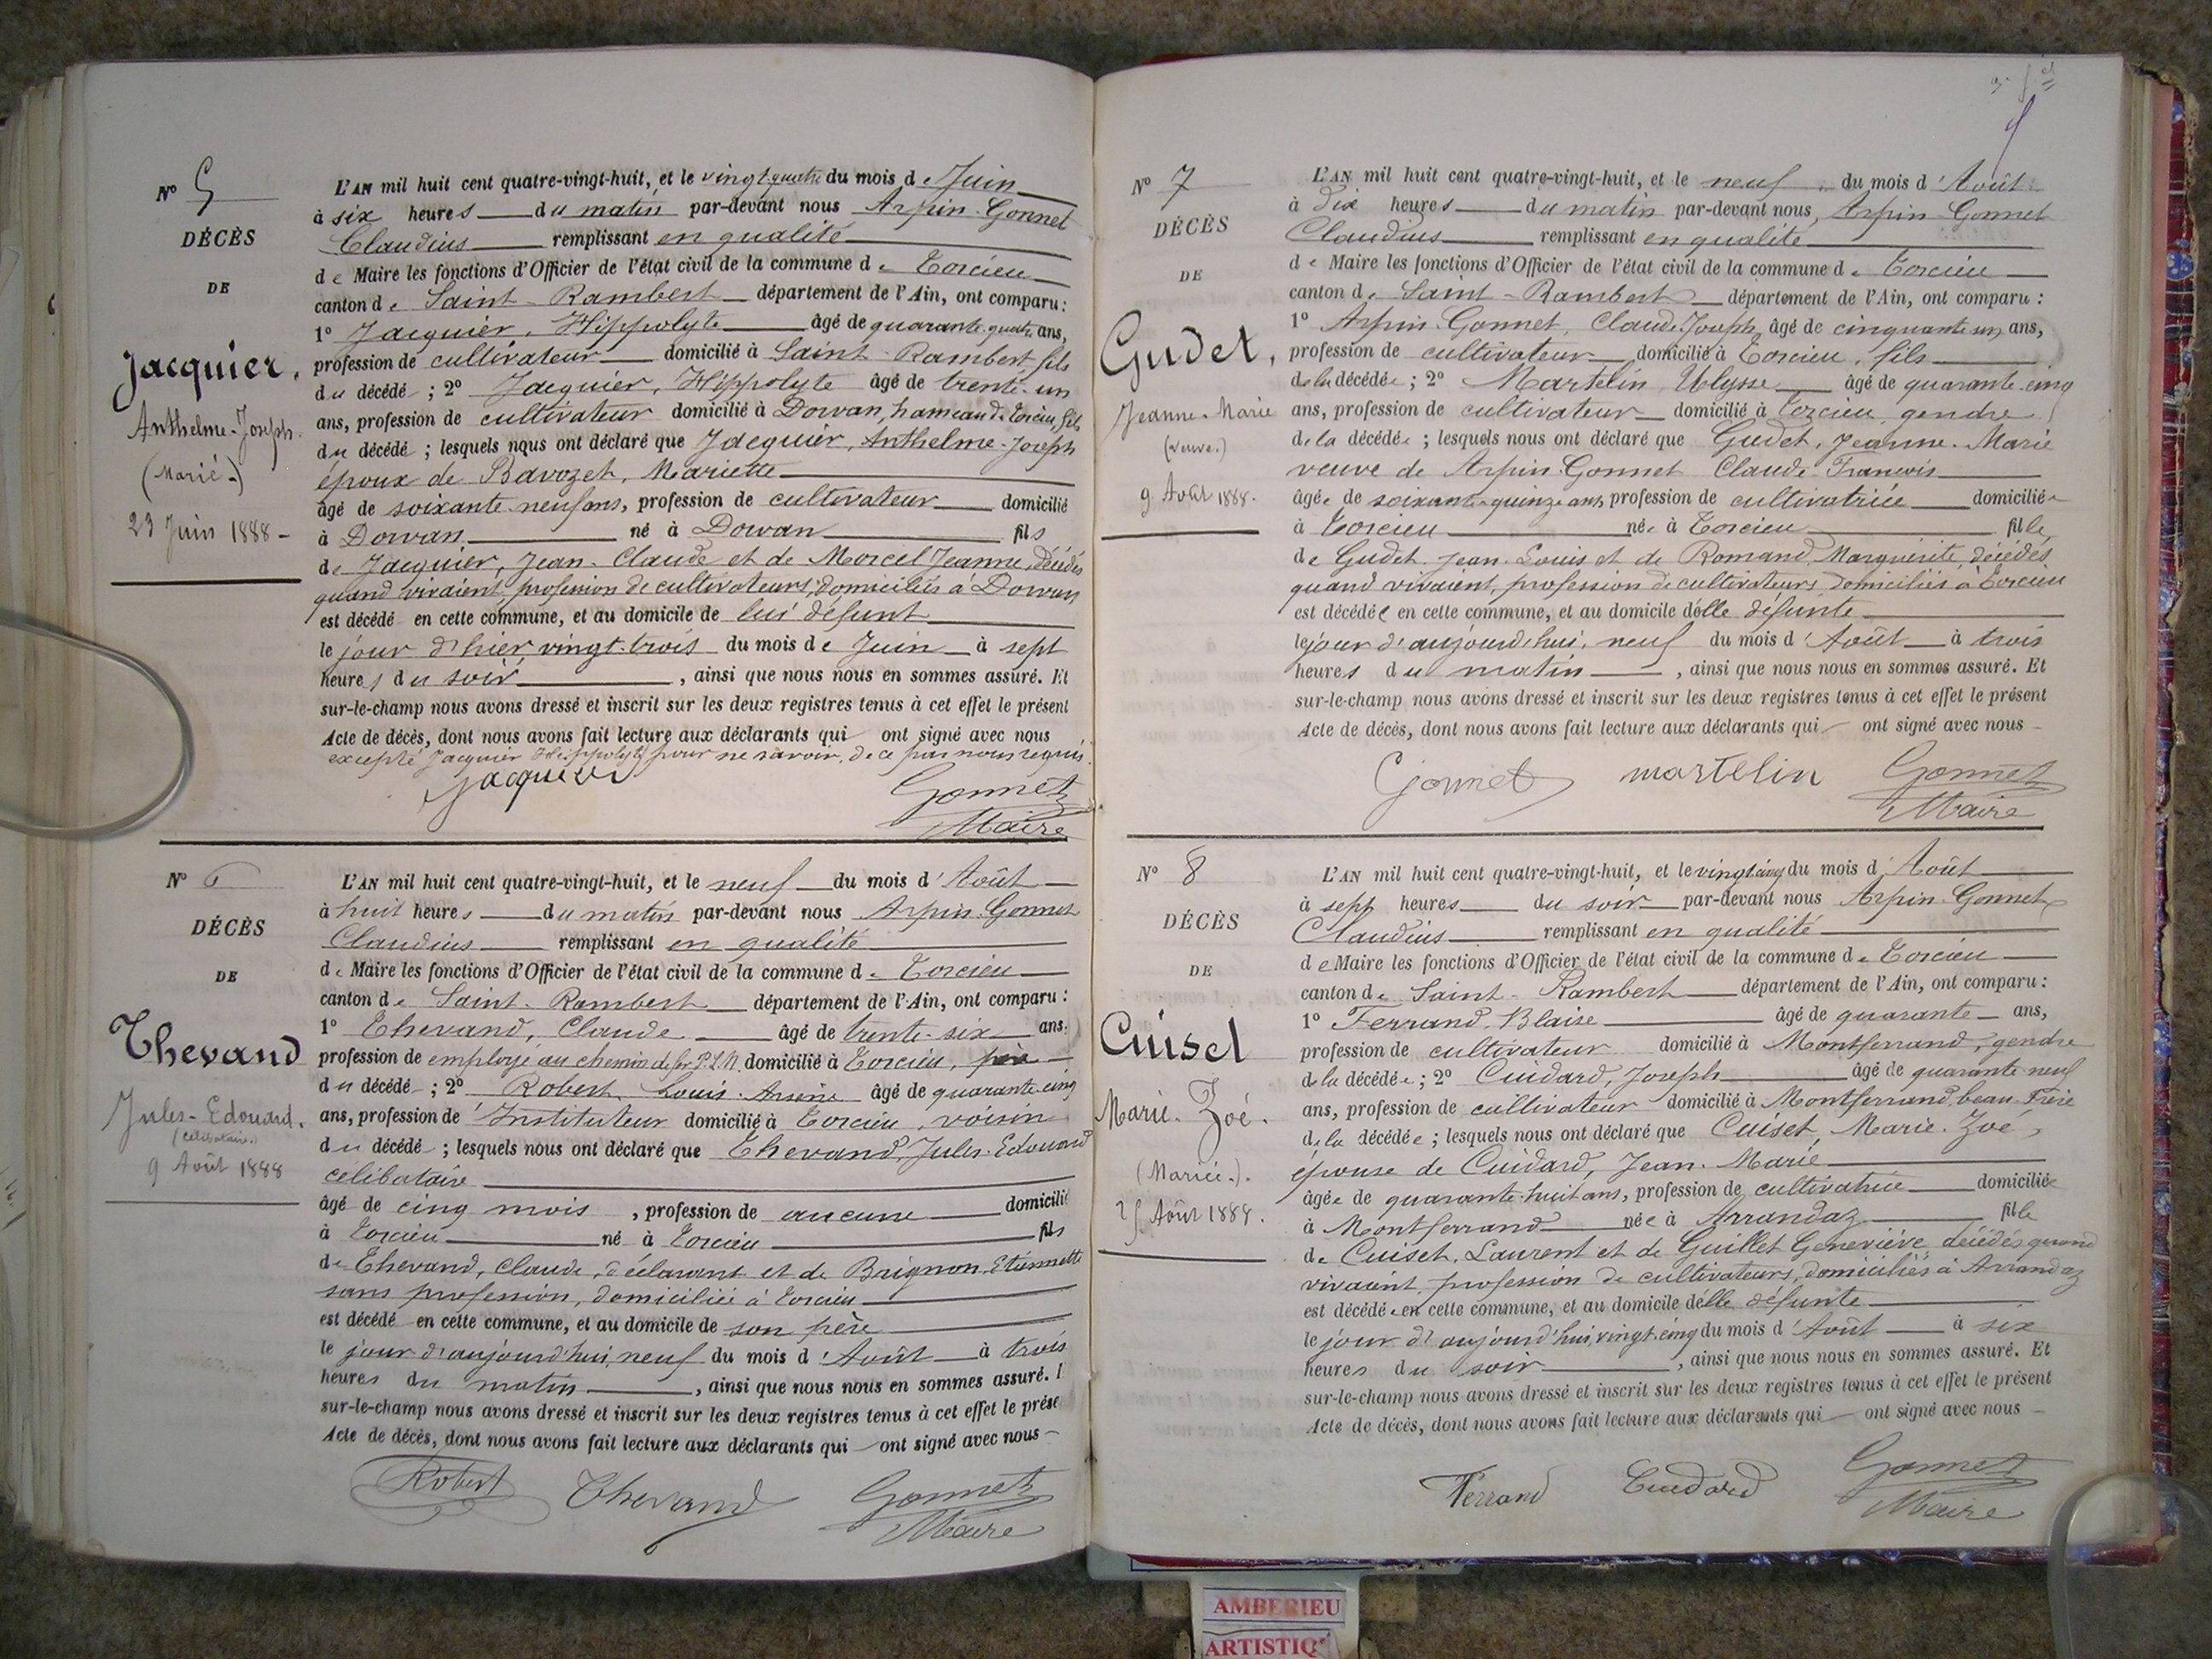 N° 5
DÉCÈS
DE
Jacquier,
Anthelme-Joseph.
(Marié.)
23 Juin 1888 -
L'AN mil huit cent quatre-vingt-huit, et le vingt quatre du mois de Juin
à six heures du matin par-devant nous Arpin-Gonnet
Claudius remplissant en qualité
de Maire les fonctions d'Officier de l'état civil de la commune de Torcieu
canton de Saint-Rambert département de l'Ain, ont comparu :
1° Jacquier, Hippolyte âgé de quarante quatre ans,
profession de cultivateur domicilié à Saint-Rambert, fils
du décédé ; 2° Jacquier, Hippolyte âgé de trente-un
ans, profession de cultivateur domicilié à Dorvan, hameau de Torcieu, fils
du décédé ; lesquels nous ont déclaré que Jacquier, Anthelme-Joseph
époux de Bavozet, Mariette
âgé de soixante neuf ans, profession de cultivateur domicilié
à Dorvan né à Dorvan fils
de Jacquier, Jean-Claude et de Morcel Jeanne, décédés
quand vivaient, profession de cultivateurs, domiciliés à Dorvan
est décédé en cette commune, et au domicile de lui défunt
le jour d'hier vingt-trois du mois de Juin à sept
heures du soir, ainsi que nous nous en sommes assuré. Et
sur-le-champ nous avons dressé et inscrit sur les deux registres tenus à cet effet le présent
Acte de décès, dont nous avons fait lecture aux déclarants qui ont signé avec nous
excepté Jacquier Hippolyte pour ne savoir, de ce par nous requis.
Jacquier Gonnet
Maire
N° 6
DÉCÈS
DE
Thevand
Jules-Edouard.
(célibataire.)
9 Août 1888
L'AN mil huit cent quatre-vingt-huit, et le neuf du mois d'Août
à huit heures du matin par-devant nous Arpin-Gonnet
Claudius remplissant en qualité
de Maire les fonctions d'Officier de l'état civil de la commune de Torcieu
canton de Saint-Rambert département de l'Ain, ont comparu :
1° Thevand, Claude âgé de trente-six ans.
profession de employé au chemin de fer P.L.M. domicilié à Torcieu, père
du décédé ; 2° Robert, Louis-Arsène âgé de quarante-cinq
ans, profession de Instituteur domicilié à Torcieu, voisin
du décédé ; lesquels nous ont déclaré que Thevand, Jules-Edouard
celibataire
âgé de cinq mois, profession de aucune domicilié
à Torcieu né à Torcieu fils
de Thevand, Claude, déclarant et de Brignon, Etiennette
sans profession, domiciliée à Torcieu
est décédé en cette commune, et au domicile de son père
le jour d'aujourd'hui, neuf du mois d'Août à trois
heures du matin, ainsi que nous nous en sommes assuré.
sur-le-champ nous avons dressé et inscrit sur les deux registres tenus à cet effet le prése
Acte de décès, dont nous avons fait lecture aux déclarants qui ont signé avec nous -
Robert Thevand Gonnet
Maire
N° 7
DÉCÈS
DE
Gudet,
Jeanne-Marie
(veuve.)
9 Août 1888.
L'AN mil huit cent quatre-vingt-huit, et le neuf du mois d'Août
à dix heures du matin par-devant nous Arpin-Gonnet
Claudius remplissant en qualité
de Maire les fonctions d'Officier de l'état civil de la commune de Torcieu
canton de Saint-Rambert département de l'Ain, ont comparu :
1° Arpin-Gonnet, Claude-Joseph, âgé de cinquante un ans,
profession de cultivateur domicilié à Torcieu, fils
de la décédée ; 2° Martelin Ulysse âgé de quarante-cinq
ans, profession de cultivateur domicilié à Torcieu, gendre
de la décédée ; lesquels nous ont déclaré que Gudet, Jeanne-Marie
veuve de Arpin-Gonnet Claude François
âgée de soixante-quinze ans, profession de cultivatrice domiciliée
à Torcieu née à Torcieu fille
de Gudet, Jean-Louis et de Romand, Marguérite, décédés
quand vivaient, profession de cultivateurs, domiciliés à Torcieu
est décédée en cette commune, et au domicile d'elle défunte
le jour d'aujourd'hui, neuf du mois d'Août à trois
heures du matin, ainsi que nous nous en sommes assuré. Et
sur-le-champ nous avons dressé et inscrit sur les deux registres tenus à cet effet le présent
Acte de décès, dont nous avons fait lecture aux déclarants qui ont signé avec nous -
Gonnet martelin Gonnet
Maire
N° 8
DÉCÈS
DE
Cuiset
Marie-Zoé.
(Mariée.).
25 Août 1888.
L'AN mil huit cent quatre-vingt-huit, et le vingt cinq du mois d'Août
à sept heures du soir par-devant nous Arpin-Gonnet
Claudius remplissant en qualité
de Maire les fonctions d'Officier de l'état civil de la commune de Torcieu
canton de Saint-Rambert département de l'Ain, ont comparu :
1° Ferrand, Blaise âgé de quarante ans,
profession de cultivateur domicilié à Montferrand, gendre
de la décédée ; 2° Cuidard, Joseph âgé de quarante-neuf
ans, profession de cultivateur domicilié à Montferrand, beau-Frère
de la décédée ; lesquels nous ont déclaré que Cuiset, Marie-Zoé,
épouse de Cuidard, Jean-Marie
âgée de quarante-huit ans, profession de cultivatrice domiciliée
à Montferrand née à Arrandaz fille
de Cuiset, Laurent et de Guillet Geneviève, décédés quand
vivaient, profession de cultivateurs, domiciliés à Arrandaz
est décédée en cette commune, et au domicile d'elle défunte
le jour d'aujourd'hui, vingt-cinq du mois d'Août à six
heures du soir, ainsi que nous nous en sommes assuré. Et
sur-le-champ nous avons dressé et inscrit sur les deux registres tenus à cet effet le présent
Acte de décès, dont nous avons fait lecture aux déclarants qui ont signé avec nous -
Ferrand Cuidard Gonnet
Maire
AMBERIEU
ARTISTIQ